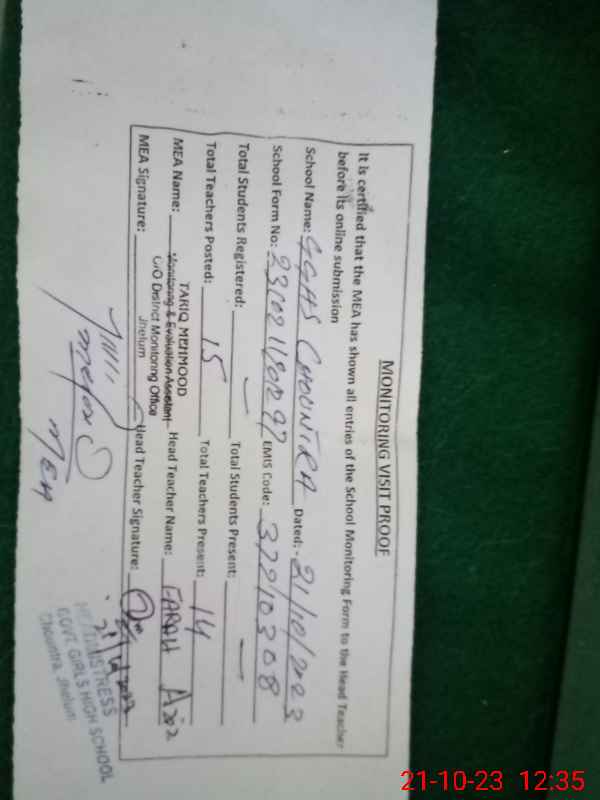 MONITORING VISIT PROOF
It is certified that the MEA has shown all entries of the School Monitoring Form to the Head Teacher
before its online submission
School Name: GGHS CHOUNTRA Dated:- 21/10/2023
School Form No: EMIS Code: 37210308
Total Students Registered: — Total Students Present: —
Total Teachers Posted: 15 Total Teachers Present: 14
TARIQ MEHMOOD
MEA Name: Monitoring & Evaluation Assistant Head Teacher Name: FARAH Aziz
O/O District Monitoring Office
Jhelum
MEA Signature: Head Teacher Signature:
MEA
HEADMISTRESS
GOVT. GIRLS HIGH SCHOOL
Chountra, Jhelum
21-10-23 12:35